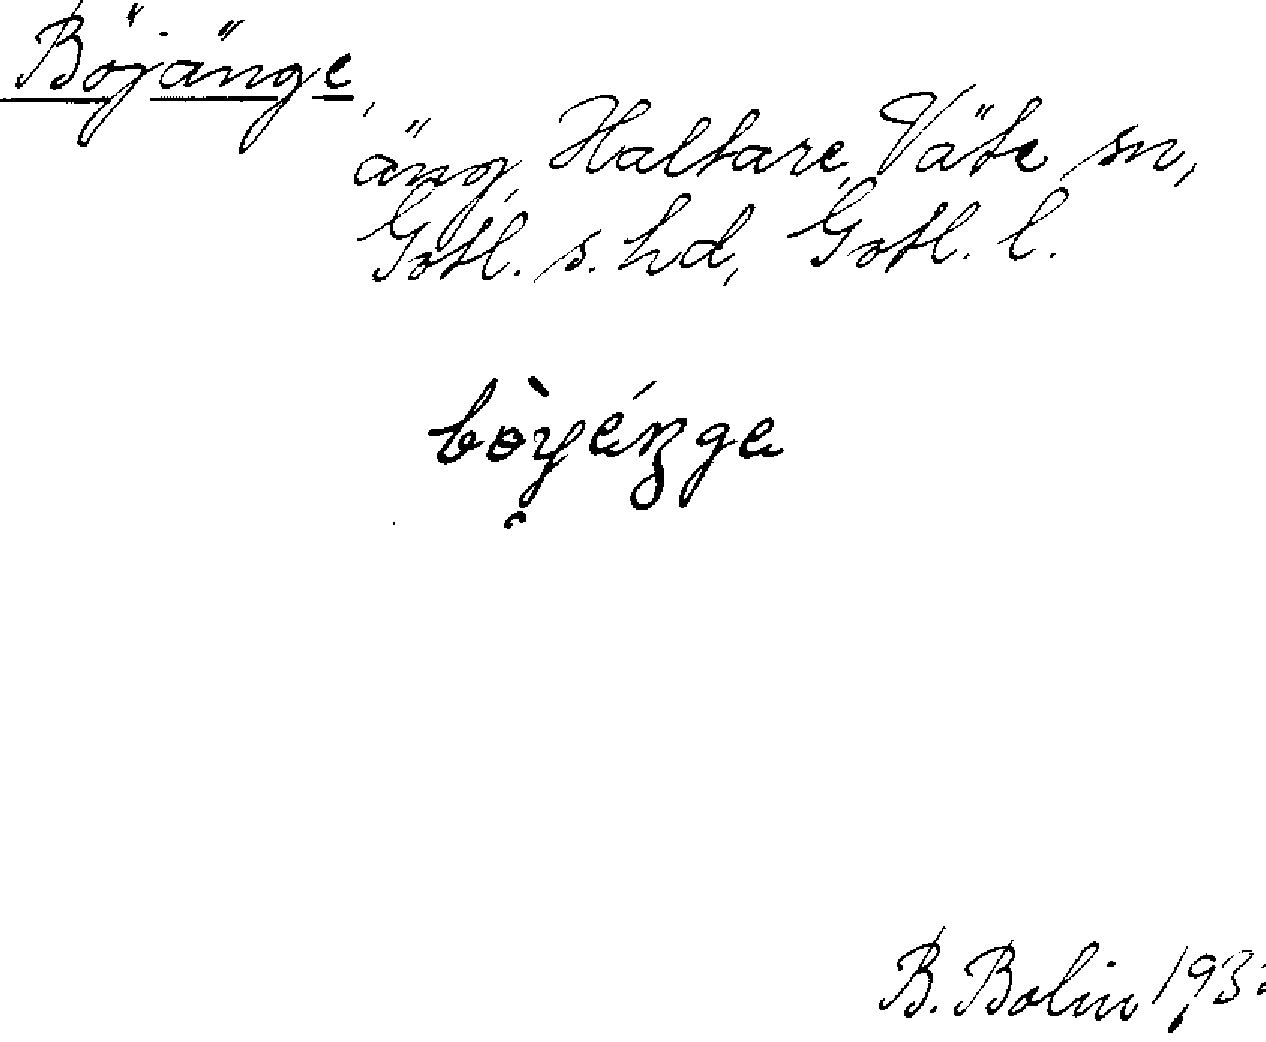 Böjänge,
äng, Haltare, Väte sn,
Gotl. s. hd, Gotl. l.
bòyéŋge
B. Bolin